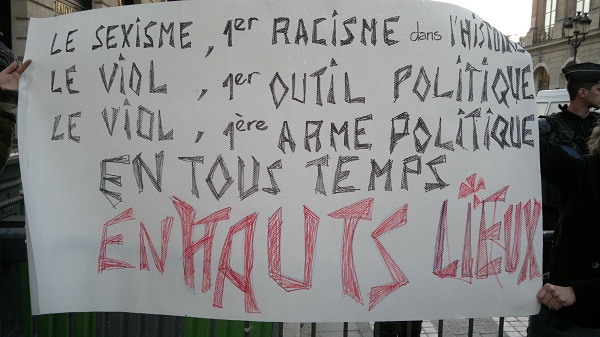 LE SEXISME, 1er RACISME dans l'HISTOIRE
LE VIOL, 1er OUTIL POLITIQUE
LE VIOL, 1ère ARME POLITIQUE
EN TOUS TEMPS
EN HAUTS LIEUX